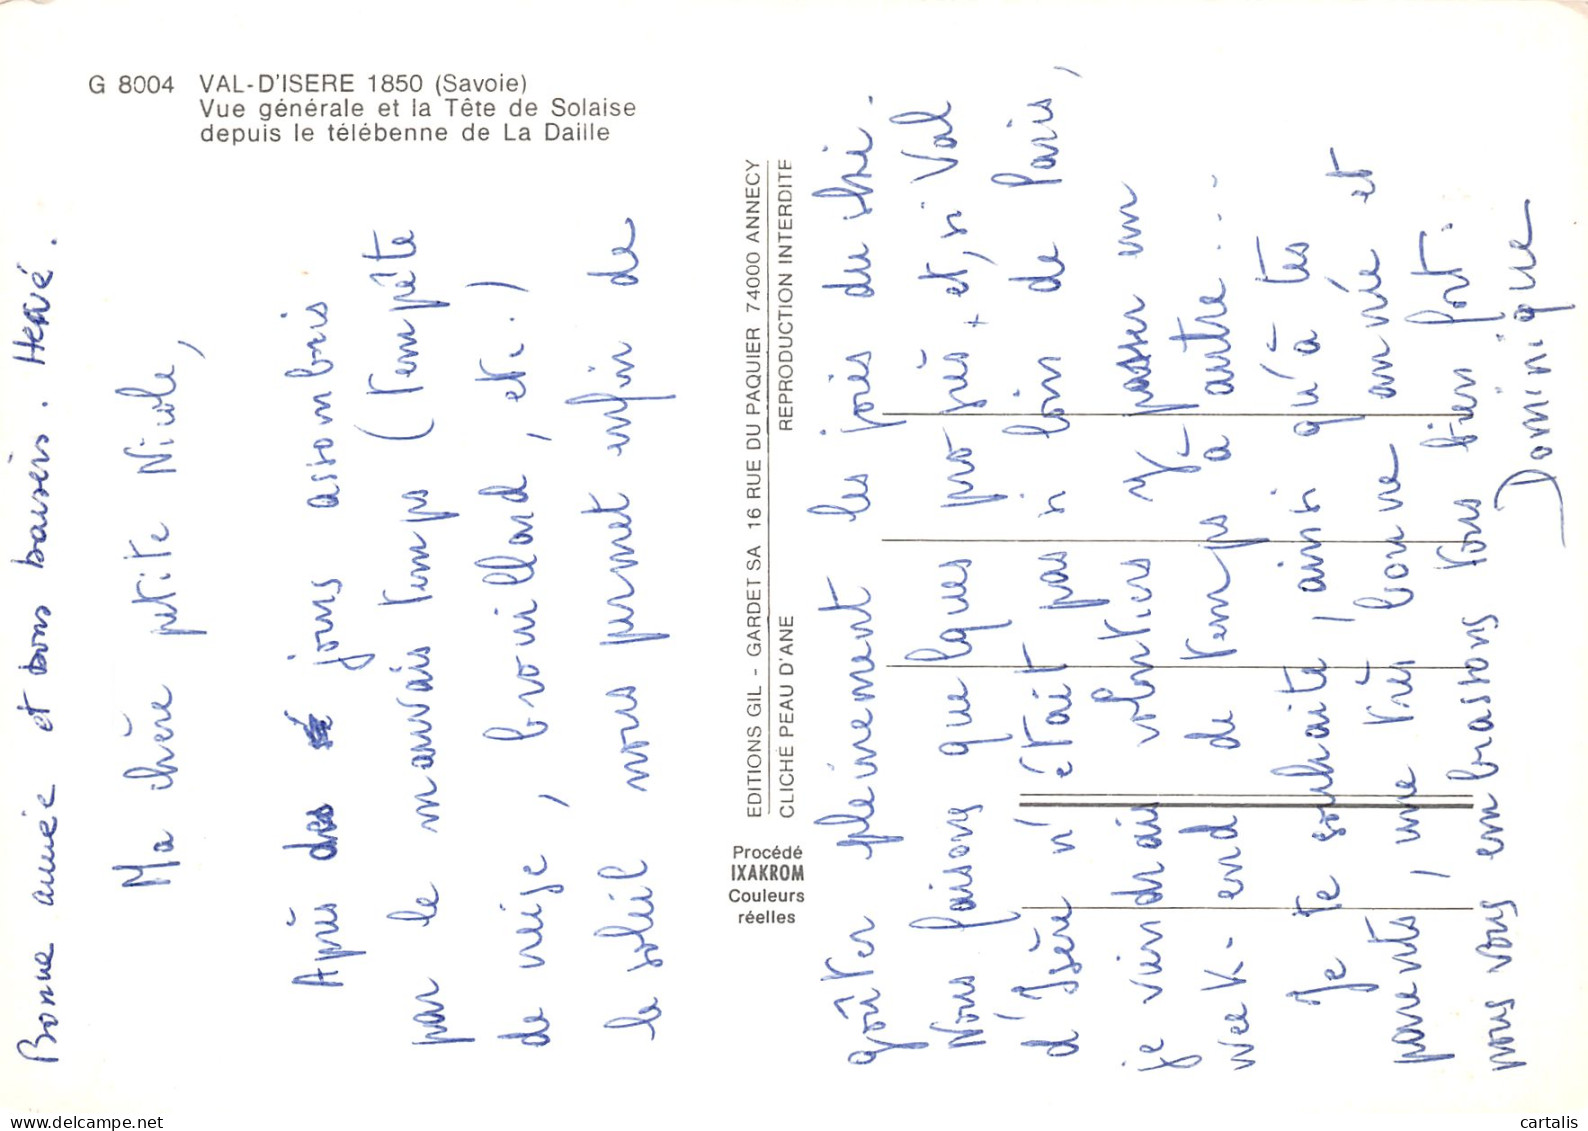 G 8004 VAL-D'ISERE 1850 (Savoie)
Vue générale et la Tête de Solaise
depuis le télébenne de La Daille
Bonne année et bons baisers. Hervé.
Ma chère petite Nicole,
Après des jours assombris
par le mauvais temps (tempête
de neige, brouillard, etc.)
le soleil nous permet enfin de
EDITIONS GIL - GARDET SA 16 RUE DU PAQUIER 74000 ANNECY
CLICHÉ PEAU D'ANE REPRODUCTION INTERDITE
Procédé
IXAKROM
Couleurs
réelles
goûter pleinement les joies du ski.
Nous faisons quelques progrès + et, si Val
d'Isère n'était pas si loin de Paris,
je viendrais volontiers y passer un
week-end de temps à autre...
Je te souhaite, ainsi qu'à tes
parents, une très bonne année et
nous vous embrassons tous bien fort.
Dominique
cartalis
www.delcampe.net